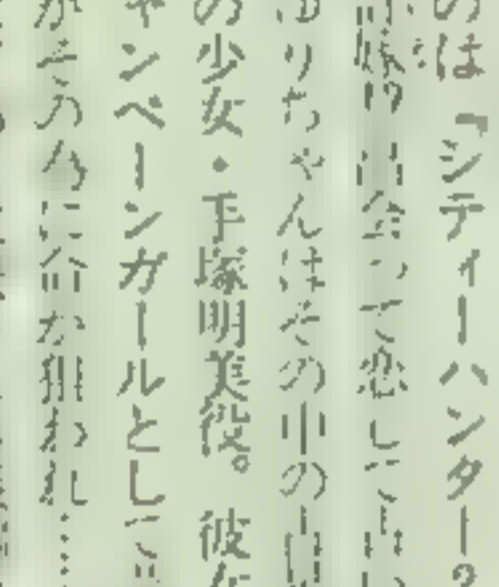 のは『シティーハンター
出会って恋して
ゆりちゃんはその中の
の少女・手塚明美役。彼女
ャンペーンガールとして
がその為に命が狙われ……